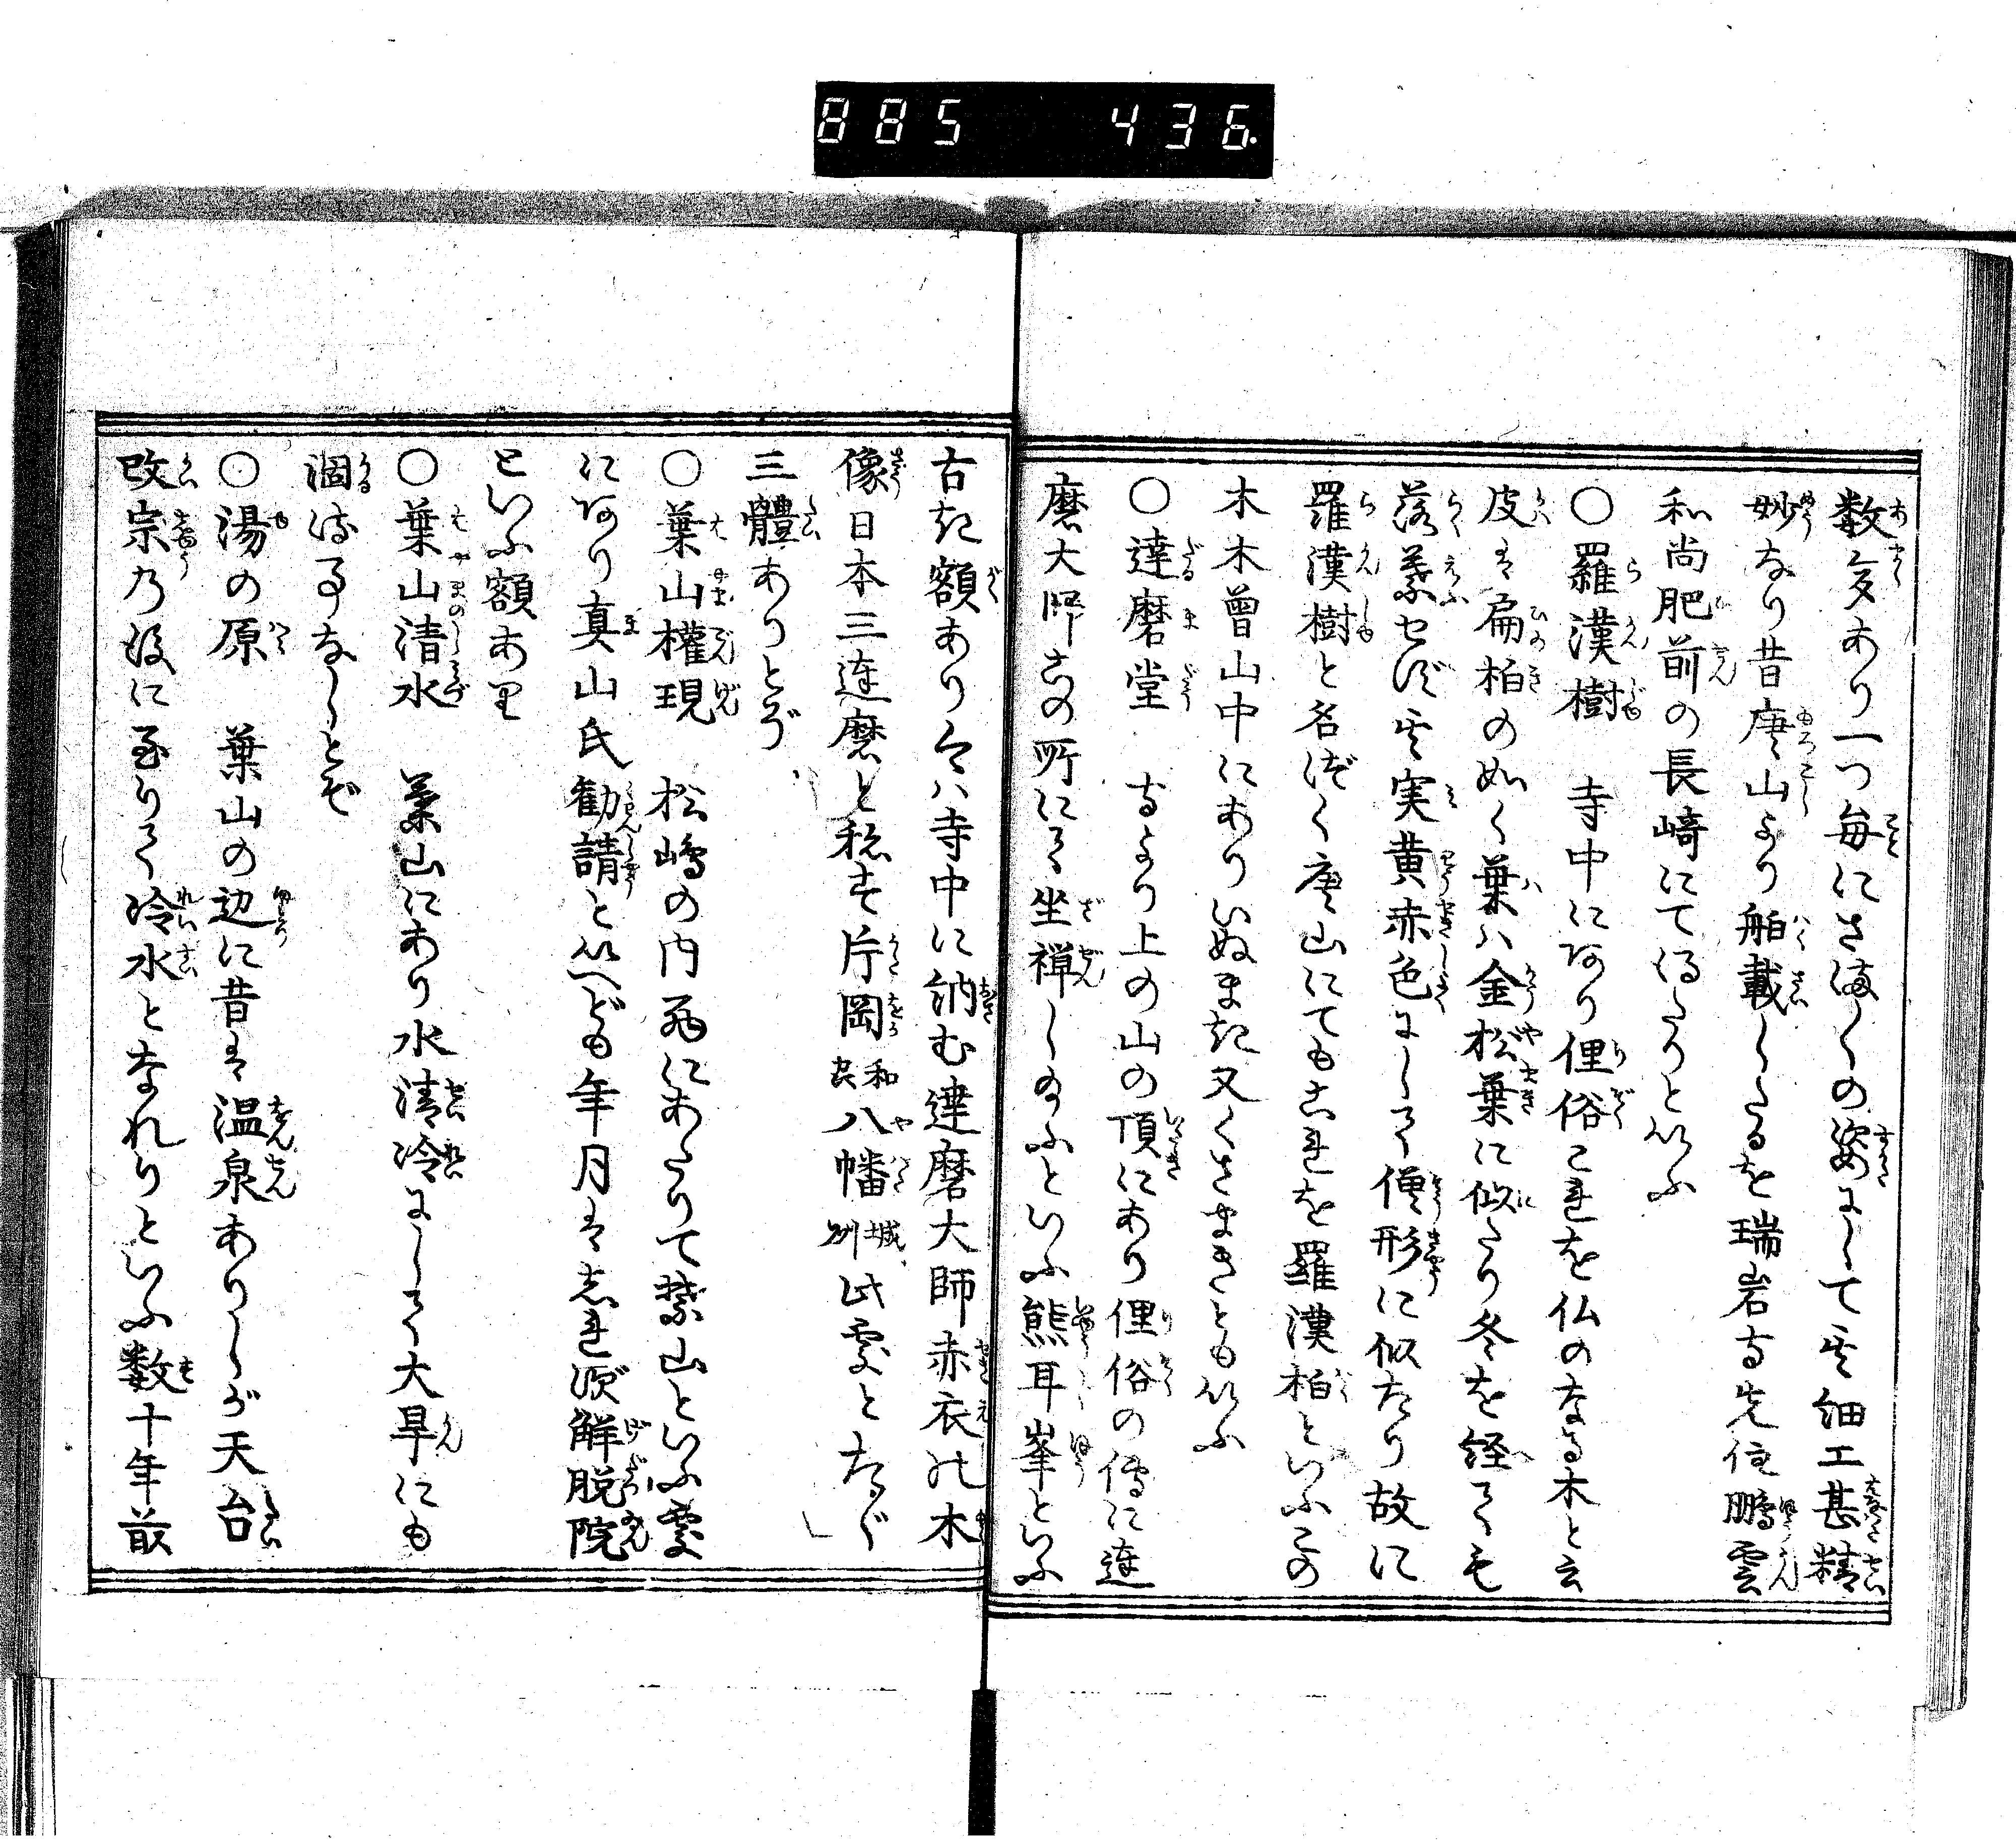 885 436
数多あり一つ毎にさま〱の姿にして其細工甚精
妙なり昔唐山より舶載したるを瑞岩寺先住鵬雲
和尚肥前の長崎にて得たりといふ
〇羅漢樹 寺中にあり俚俗これを仏のなる木と云
皮は扁柏の如く葉ハ金松葉に似たり冬を経ても
落葉せず其実黄赤色にして僧形に似たり故に
羅漢樹と名づく唐山にてもこれを羅漢柏といふこの
木木曽山中にありいぬまき又くさまきともいふ
〇達磨堂 寺より上の山の頂にあり俚俗の傳に達
磨大師この所にて坐禅し給ふといふ熊耳峯といふ
古き額あり今ハ寺中に納む達磨大師赤衣の木
像日本三達磨と称す片岡和州八幡城州此處とたゞ
三體ありとぞ
〇葉山權現 松嶋の内海にあたりて葉山といふ處
にあり真山氏勧請といへども年月はしれず解脱院
といふ額あり
〇葉山清水 葉山にあり水清冷にして大旱にも
涸るゝ事なしとぞ
〇湯の原 葉山の辺に昔は温泉ありしが天台
改宗の後に至りて冷水となれりといふ数十年前